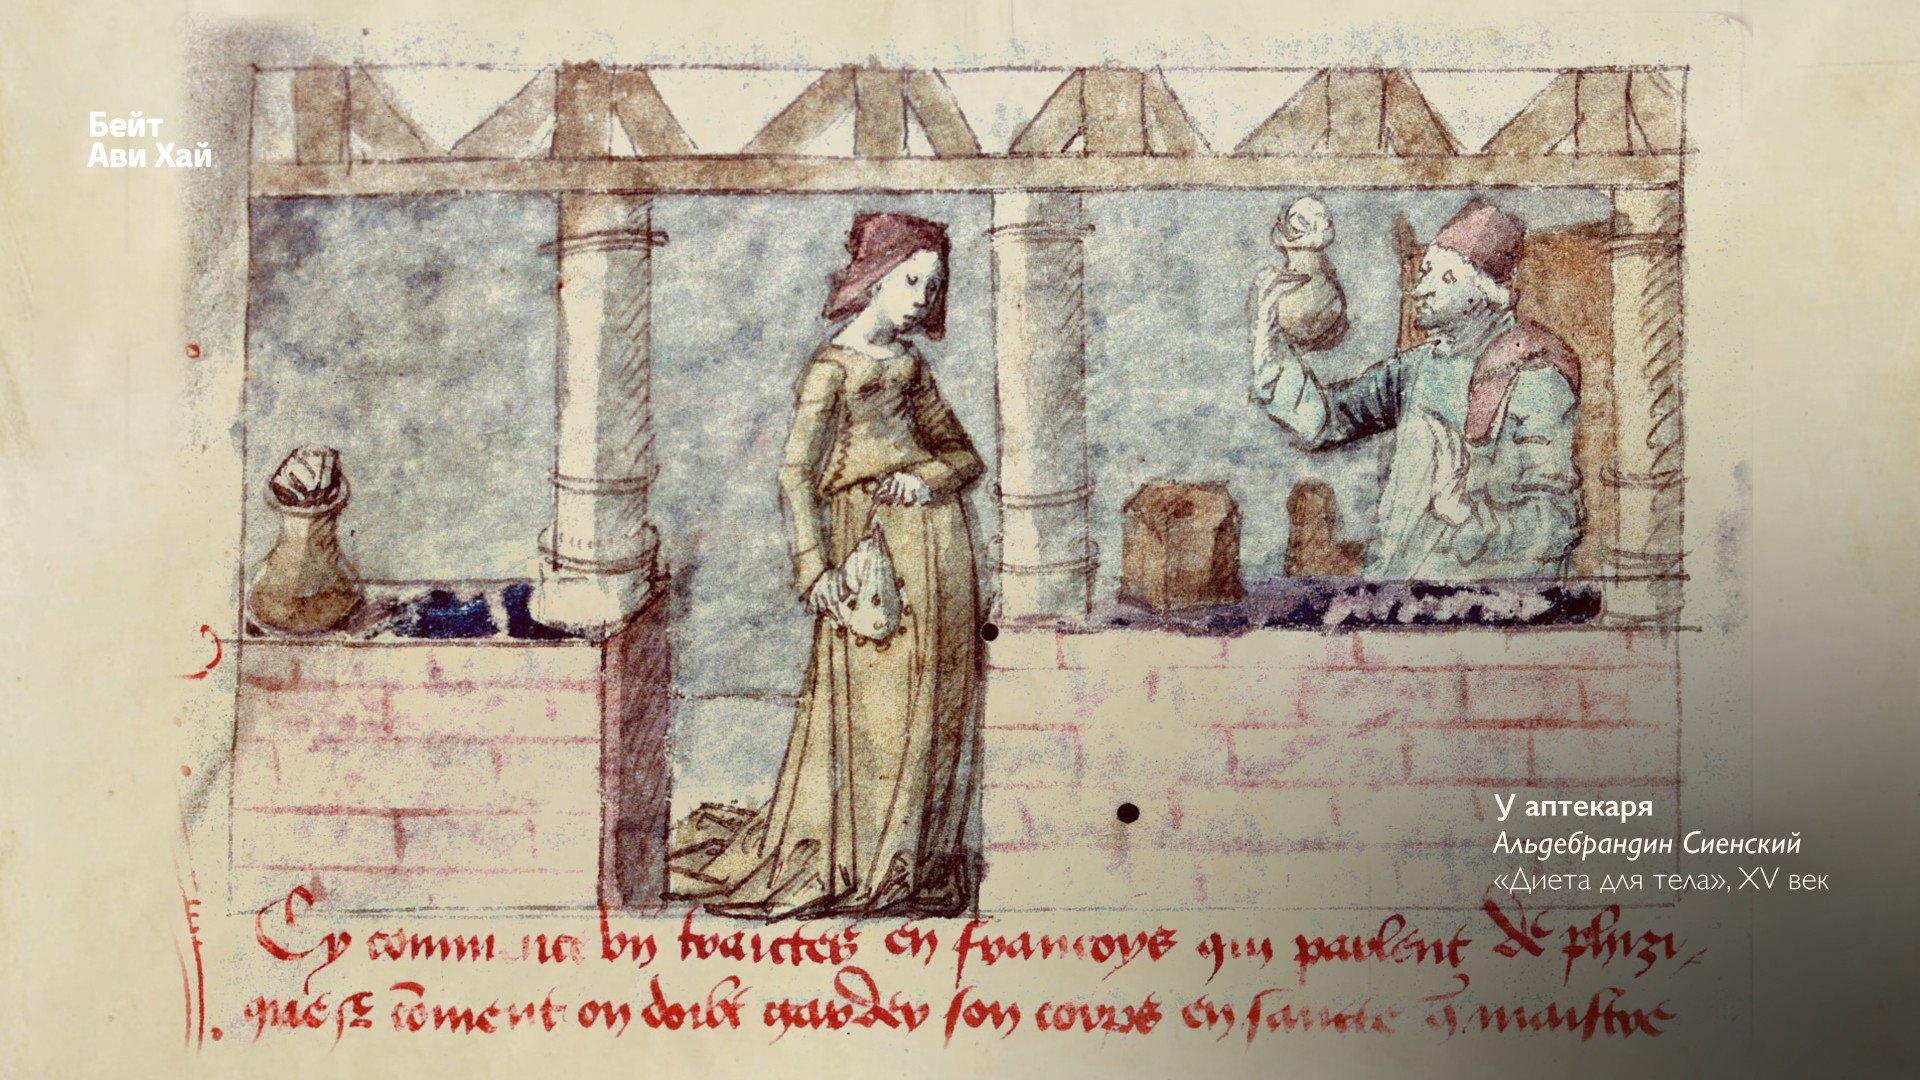 Бейт
Ави Хай
У аптекаря
Альдебрандин Сиенский
«Диета для тела», XV век
Cy commence vn traictes en francoys qui parlent de phizi
que et coment on doibt garder son corps en sancte q maistre